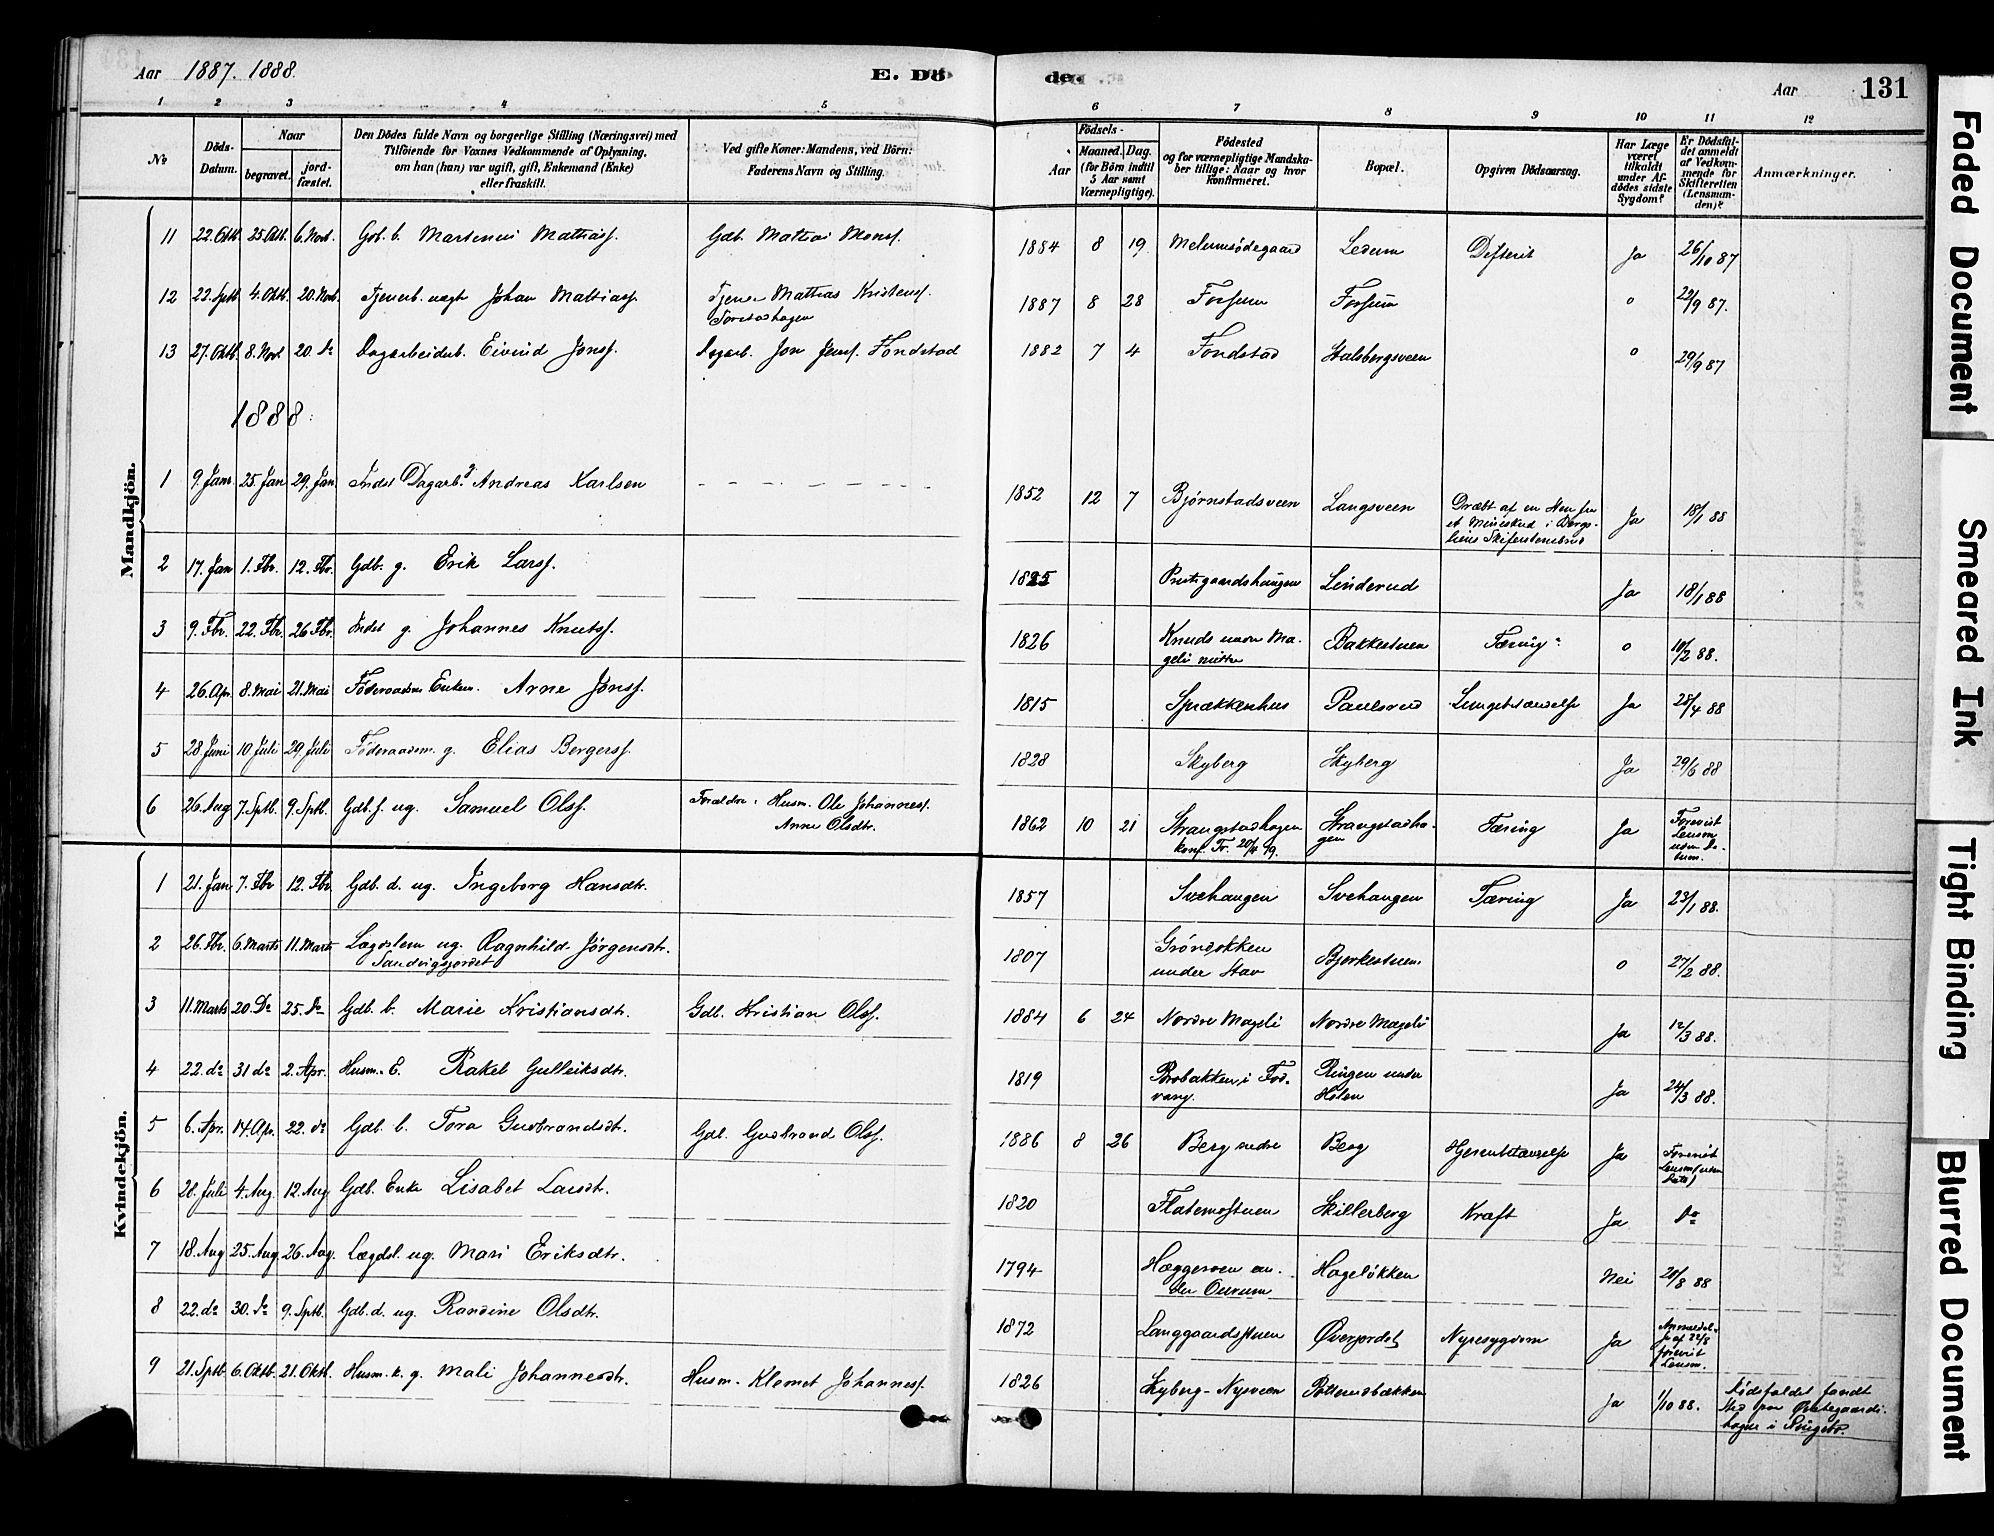 Aar 1887. 1888. E. Dö de. Aar 131
1 2 3 4 5 6 7 8 9 10 11 12
No Döds-Datum. Naar begravet. jordfæstet. Den Dödes fulde Navn og borgerlige Stilling (Næringsvei) med Tilföiende for Voxnes Vedkommende af Oplysning, om han (hun) var ugift, gift, Enkemand (Enke) eller fraskilt. Ved gifte Koner: Mandens, ved Börn: Faderens Navn og Stilling. Aar Födsels- Maaned. Dag. (for Börn indtil 5 Aar samt Værnepligtige). Födested og for værnepligtige Mandskaber tillige: Naar og hvor konfirmeret. Bopæl. Opgiven Dödsaarsag. Har Læge været tilkaldt under Afdödes sidste Sygdom? Er Dödsfaldet anmeldt af Vedkommende for Skifteretten (Lensmanden)? Anmærkninger.
Mandkjön.
11 22. Oktb. 25. Oktb. 6. Novb. Gdb. b. Martinus Mathiass. Gdb. Mathias Monss. 1884 8 19 Melumsödegaard Ledum Defterit Ja 26/10 87
12 22. Sptb. 4. Oktb. 20. Novb. Tjenerb. uægt. Johan Mathiass. Tjener Mathias Kristenss. 1887 8 28 Forsum Forsum o 22/9 87.
13 27. Oktb. 8. Nov. 20. do Dagarbeiderb. Eivind Jonss. Dagarb. Jon Jenss. Fondstad 1882 7 4 Fondstad Stalsbergsveen o 29/9 87
1888.
1 9. Janr. 25. Jan 29. Jan Inderst Dagarb. g Andreas Karlsen 1852 12 7 Bjørnstadsveen Langsveen Dræbt af en Sten fra et Mineskud i Bergsliens Skiferstensbrud Ja 18/1 88
2 17. Jan 1. Fbr. 12. Fbr. Gdb. g. Erik Larss. 1825 Prestgaardshaugen Linderud Ja 18/1 88
3 9. Fbr. 22. Fbr. 26. Fbr. Inderst g. Johannes Knutss. 1826 Knuds under Mageli Bakkestuen Tæring o 10/2 88.
4 26. Apr. 8. Mai 21. Mai Föderaadsm. Enkem. Arne Jonss. 1815 Sprækkenhus Paulsrud Lungebetændelse Ja 28/4 88
5 28. Juni 10 Juli 29. Juli Föderaadsm. g. Elias Bergerss. 1828 Skyberg Skyberg Ja 29/6 88
6 26. Aug 7. Sptb. 9. Sptb. Gdb. s. ug. Samuel Olss. Forældre: Husm. Ole Johanness. Anne Olsdtr. 1862 10 21 Strangstadhagen konf. Fr. 20/4 79. Strangstadhagen Tæring Ja Forevist Lensm uden Datum.
Kvindekjön.
1 21. Jan 7. Fbr 12. Fbr Gdb. d. ug. Ingeborg Hansdtr. 1857 Svehaugen Svehaugen Tæring Ja 23/1 88.
2 26. Fbr. 6. Marts 11. Marts Lægdslem ug. Ragnhild Jörgensdtr. Sandvigsjordet 1807 Grönløkken under Stav Bjerkestuen. o 27/2 88.
3 11. Marts 20. Do 25. do Gdb. b. Marie Kristiansdtr. Gdb. Kristian Olss. 1884 6 24 Nordre Mageli Nordre Mageli Ja 12/3 88.
4 22. do 31 do 2. Apr. Husm. E. Rakel Gulleiksdtr. 1819 Brobakken i Fodvang. Ringen under Holen Ja 24/3 88.
5 6. Apr. 14. Apr. 22. do Gdb. b. Tora Gudbrandsdtr. Gdb. Gudbrand Olss. 1886 8 26 Berg nedre Berg Hjernebetændelse Ja Forevist Lensm (uden Dato)
6 28. Juli 4. Aug 12. Aug Gdb. Enke Lisabet Larsdtr. 1820 Flatemostuen Skillerberg Kræft Ja do
7 18. Aug 25. Aug 26. Aug. Lægdsl. ug. Mari Eriksdtr. 1794 Hæggeroen under Ourum Hageløkken Nei 20/8 88
8 22. do 30. do 9. Sptb. Gdb. d. ug. Randine Olsdtr. 1872 Langgaardsstuen Øverjordet Nyresygdom Ja Anmeldelse af 22/8 forevist Lensm.
9 21. Sptb 6. Oktb. 21. Oktb. Husm. k. g. Mali Johannesdtr. Husm. Klemet Johanness. 1826 Skyberg-Nysveen Potterudbækken Ja 1/10 88. Dødsfaldet fandt Sted paa i Ringebo.
Faded Document
Smeared Ink
Tight Binding
Blurred Document